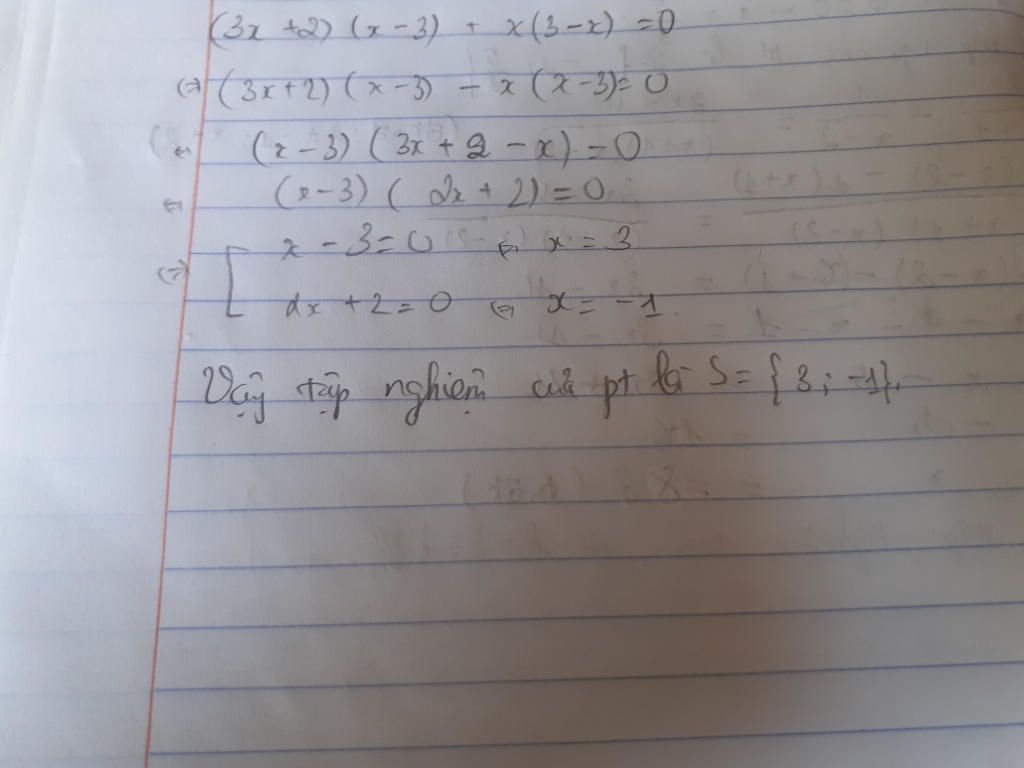 (3x + 2) (x - 3) + x(3 - x) = 0
(=) (3x + 2) (x - 3) - x (x - 3) = 0
⇔ (x - 3) (3x + 2 - x) = 0
⇔ (x - 3) ( 2x + 2) = 0
(=) [ x - 3 = 0 ⇔ x = 3
2x + 2 = 0 ⇔ x = -1.
Vậy tập nghiệm của pt là S = {3; -1}.